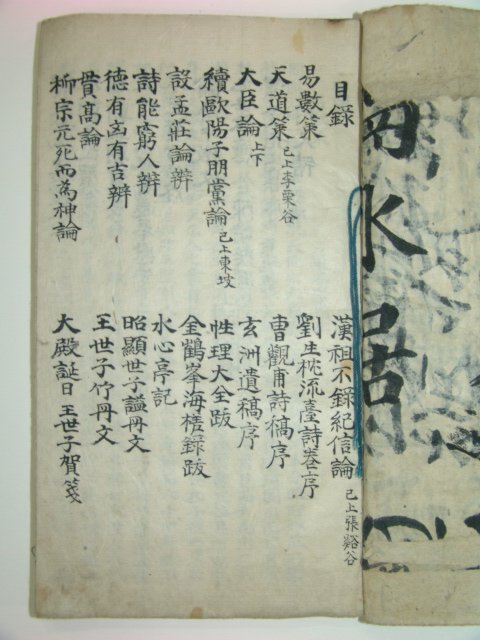 目錄
易數策
天道策 已上李栗谷
大臣論 上下
續歐陽子朋黨論 已上東坡
設孟莊論辨
詩能窮人辨
德有凶有吉辨
貫高論
柳宗元死而為神論
漢祖不錄紀信論 已上張谿谷
劉生枕流臺詩卷序
曹觀甫詩稿序
玄洲遺稿序
性理大全跋
金鶴峯海槎錄跋
水心亭記
昭顯世子諡冊文
王世子竹冊文
大殿誕日王世子賀箋
水居